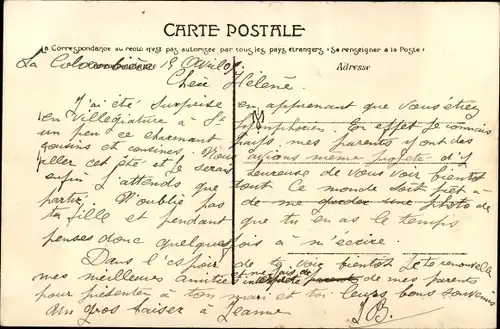 CARTE POSTALE
La Correspondance au recto n'est pas autorisée par tous les pays étrangers (Se renseigner à la Poste)
La Colombière 19 Avril
Adresse
Chère Hélène.
J'ai été surprise en apprenant que vous étiez
en villégiature à St Symphorien. En effet je connais
un peu ce charmant pays, mes parents y ont des
cousins et cousines. Nous avions même projeté d'y
aller cet été et je serais heureuse de vous voir bientôt
enfin j'attends que tout ce monde soit prêt à
partir. N'oublie pas de me garder une photo de
ta fille et pendant que tu en as le temps
penses donc quelques fois à m'écrire.
Dans l'espoir de te voir bientôt je te renouvelle
mes meilleures amitiés et me fais de
interprète de mes parents
pour présenter à ton mari et toi leurs bons souvenirs
Un gros baiser à Jeanne
JB.